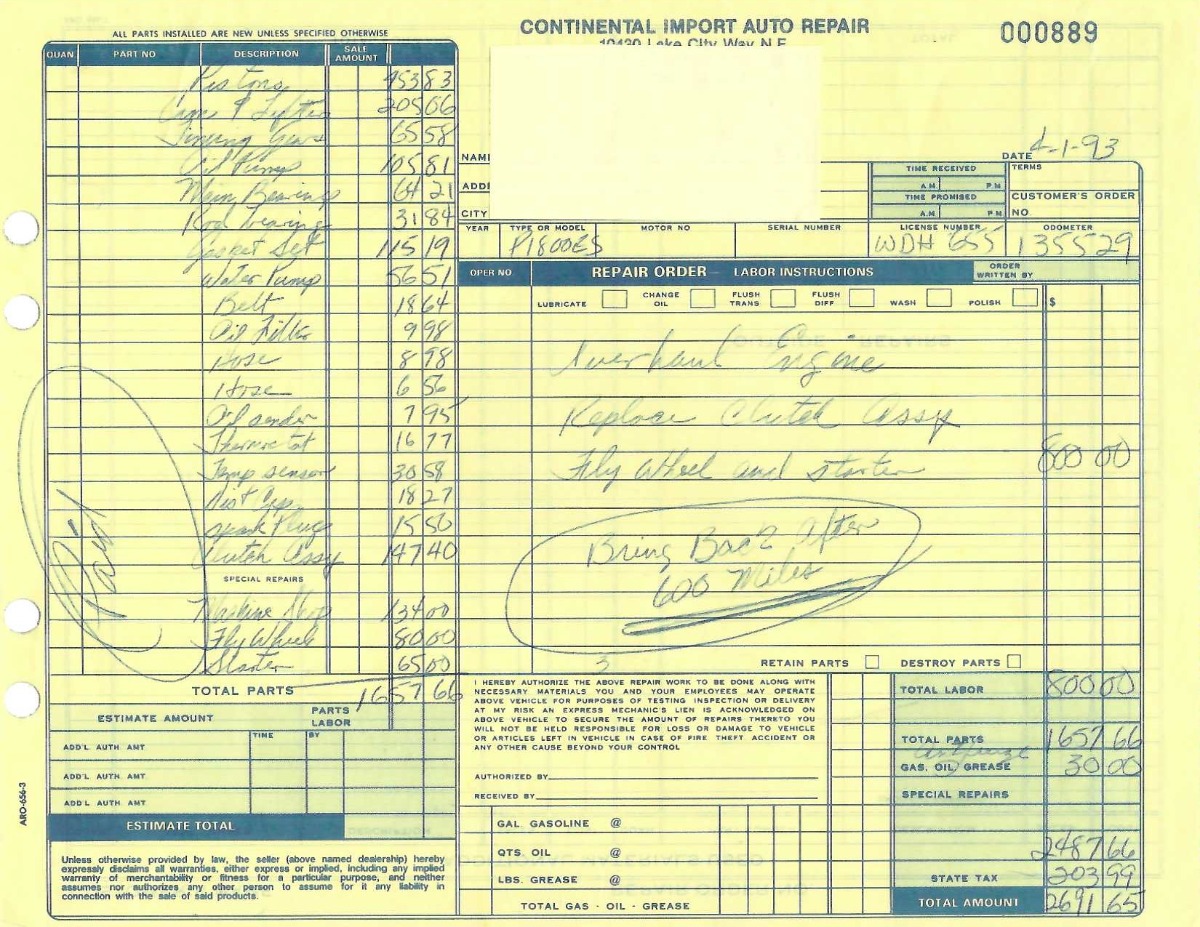 CONTINENTAL IMPORT AUTO REPAIR
10430 Lake City Way N.E.
000889
ALL PARTS INSTALLED ARE NEW UNLESS SPECIFIED OTHERWISE
QUAN PART NO DESCRIPTION SALE AMOUNT
Pistons 453 83
Cam & Lifter 205 06
Timing Gears 65 58
Oil Pump 105 81
Main Bearings 64 21
Rod bearings 31 84
Gasket Set 115 19
Water Pump 56 51
Belt 18 64
Oil Filter 9 98
Hose 8 98
Hose 6 56
Oil sender 7 95
Thermostat 16 77
Temp sensor 30 58
Dist Cap 18 27
Spark Plugs 15 50
Clutch Assy 147 40
SPECIAL REPAIRS
Machine Shop 134 00
Fly Wheel 80 00
Starter 65 00
Paid
TOTAL PARTS 1657 66
ESTIMATE AMOUNT PARTS LABOR
TIME BY
ADD'L AUTH AMT
ADD'L AUTH AMT
ADD'L AUTH AMT
ESTIMATE TOTAL
Unless otherwise provided by law, the seller (above named dealership) hereby
expressly disclaims all warranties, either express or implied, including any implied
warranty of merchantability or fitness for a particular purpose, and neither
assumes nor authorizes any other person to assume for it any liability in
connection with the sale of said products.
ARO-656-3
DATE 4-1-93
NAME
ADDR
CITY
TIME RECEIVED
A.M. P.M.
TIME PROMISED
A.M. P.M.
TERMS
CUSTOMER'S ORDER NO
YEAR TYPE OR MODEL MOTOR NO SERIAL NUMBER LICENSE NUMBER ODOMETER
P1800ES WDH 655 135529
OPER NO. REPAIR ORDER — LABOR INSTRUCTIONS ORDER WRITTEN BY
LUBRICATE CHANGE OIL FLUSH TRANS FLUSH DIFF. WASH POLISH $
Overhaul Engine
Replace Clutch Assy
Fly Wheel and starter 800 00
Bring Back After
600 Miles
3
RETAIN PARTS DESTROY PARTS
I HEREBY AUTHORIZE THE ABOVE REPAIR WORK TO BE DONE ALONG WITH
NECESSARY MATERIALS YOU AND YOUR EMPLOYEES MAY OPERATE
ABOVE VEHICLE FOR PURPOSES OF TESTING INSPECTION OR DELIVERY
AT MY RISK AN EXPRESS MECHANIC'S LIEN IS ACKNOWLEDGED ON
ABOVE VEHICLE TO SECURE THE AMOUNT OF REPAIRS THERETO YOU
WILL NOT BE HELD RESPONSIBLE FOR LOSS OR DAMAGE TO VEHICLE
OR ARTICLES LEFT IN VEHICLE IN CASE OF FIRE THEFT ACCIDENT OR
ANY OTHER CAUSE BEYOND YOUR CONTROL
AUTHORIZED BY
RECEIVED BY
GAL. GASOLINE @
QTS. OIL @
LBS. GREASE @
TOTAL GAS - OIL - GREASE
TOTAL LABOR 800 00
TOTAL PARTS 1657 66
antifreeze
GAS, OIL, GREASE 30 00
SPECIAL REPAIRS
2487 66
STATE TAX 203 99
TOTAL AMOUNT 2691 65